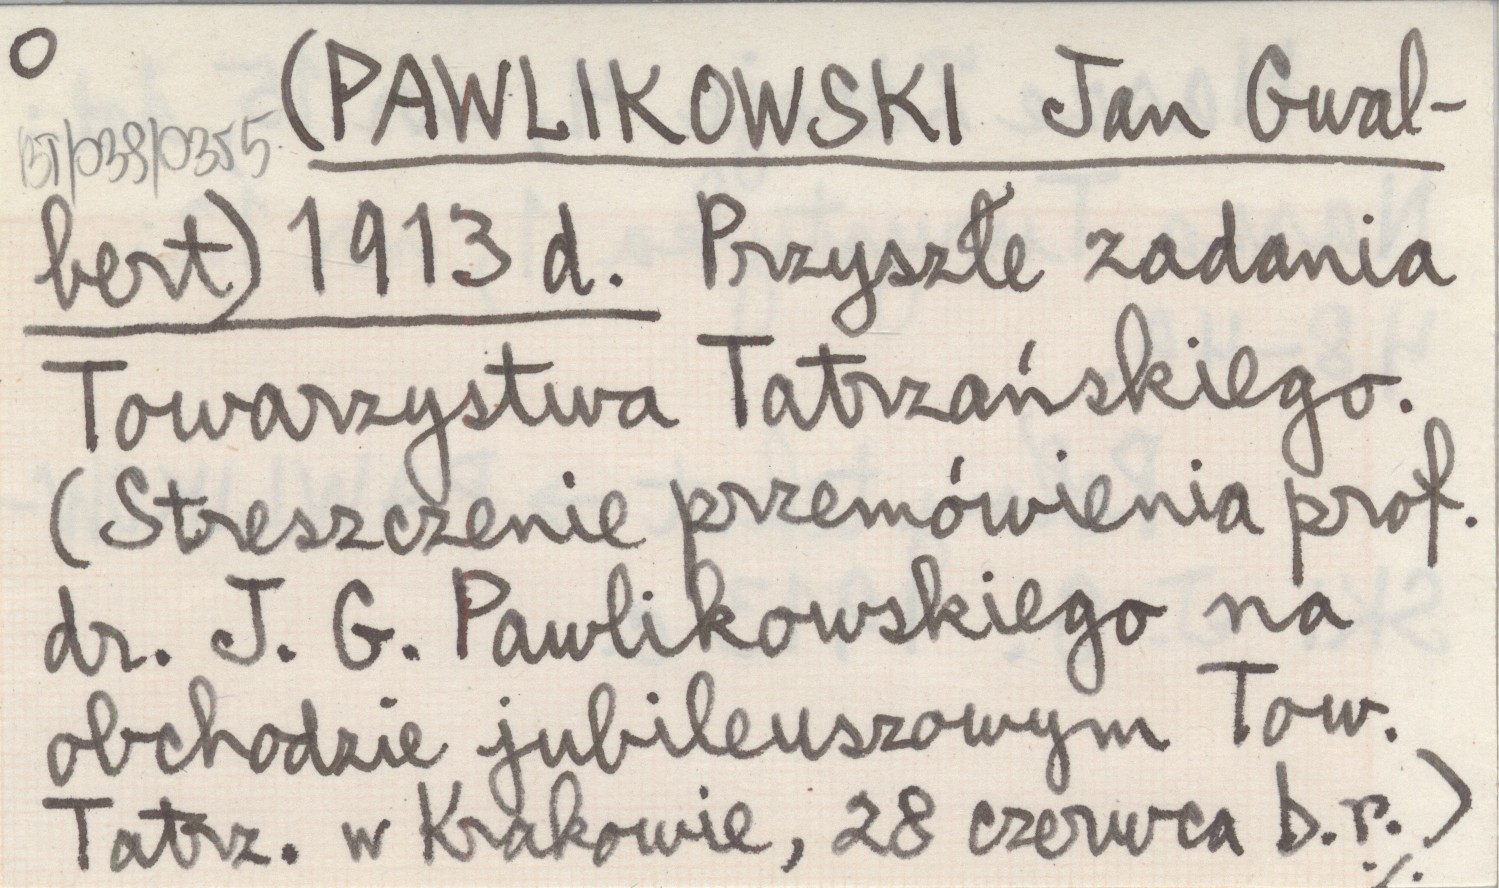 O
(PAWLIKOWSKI Jan Gwal-
BT/038/0355
bert) 1913 d. Przyszłe zadania
Towarzystwa Tatrzańskiego.
(Streszczenie przemówienia prof.
dr. J. G. Pawlikowskiego na
obchodzie jubileuszowym Tow.
Tatrz. w Krakowie, 28 czerwca b.r.)
./.